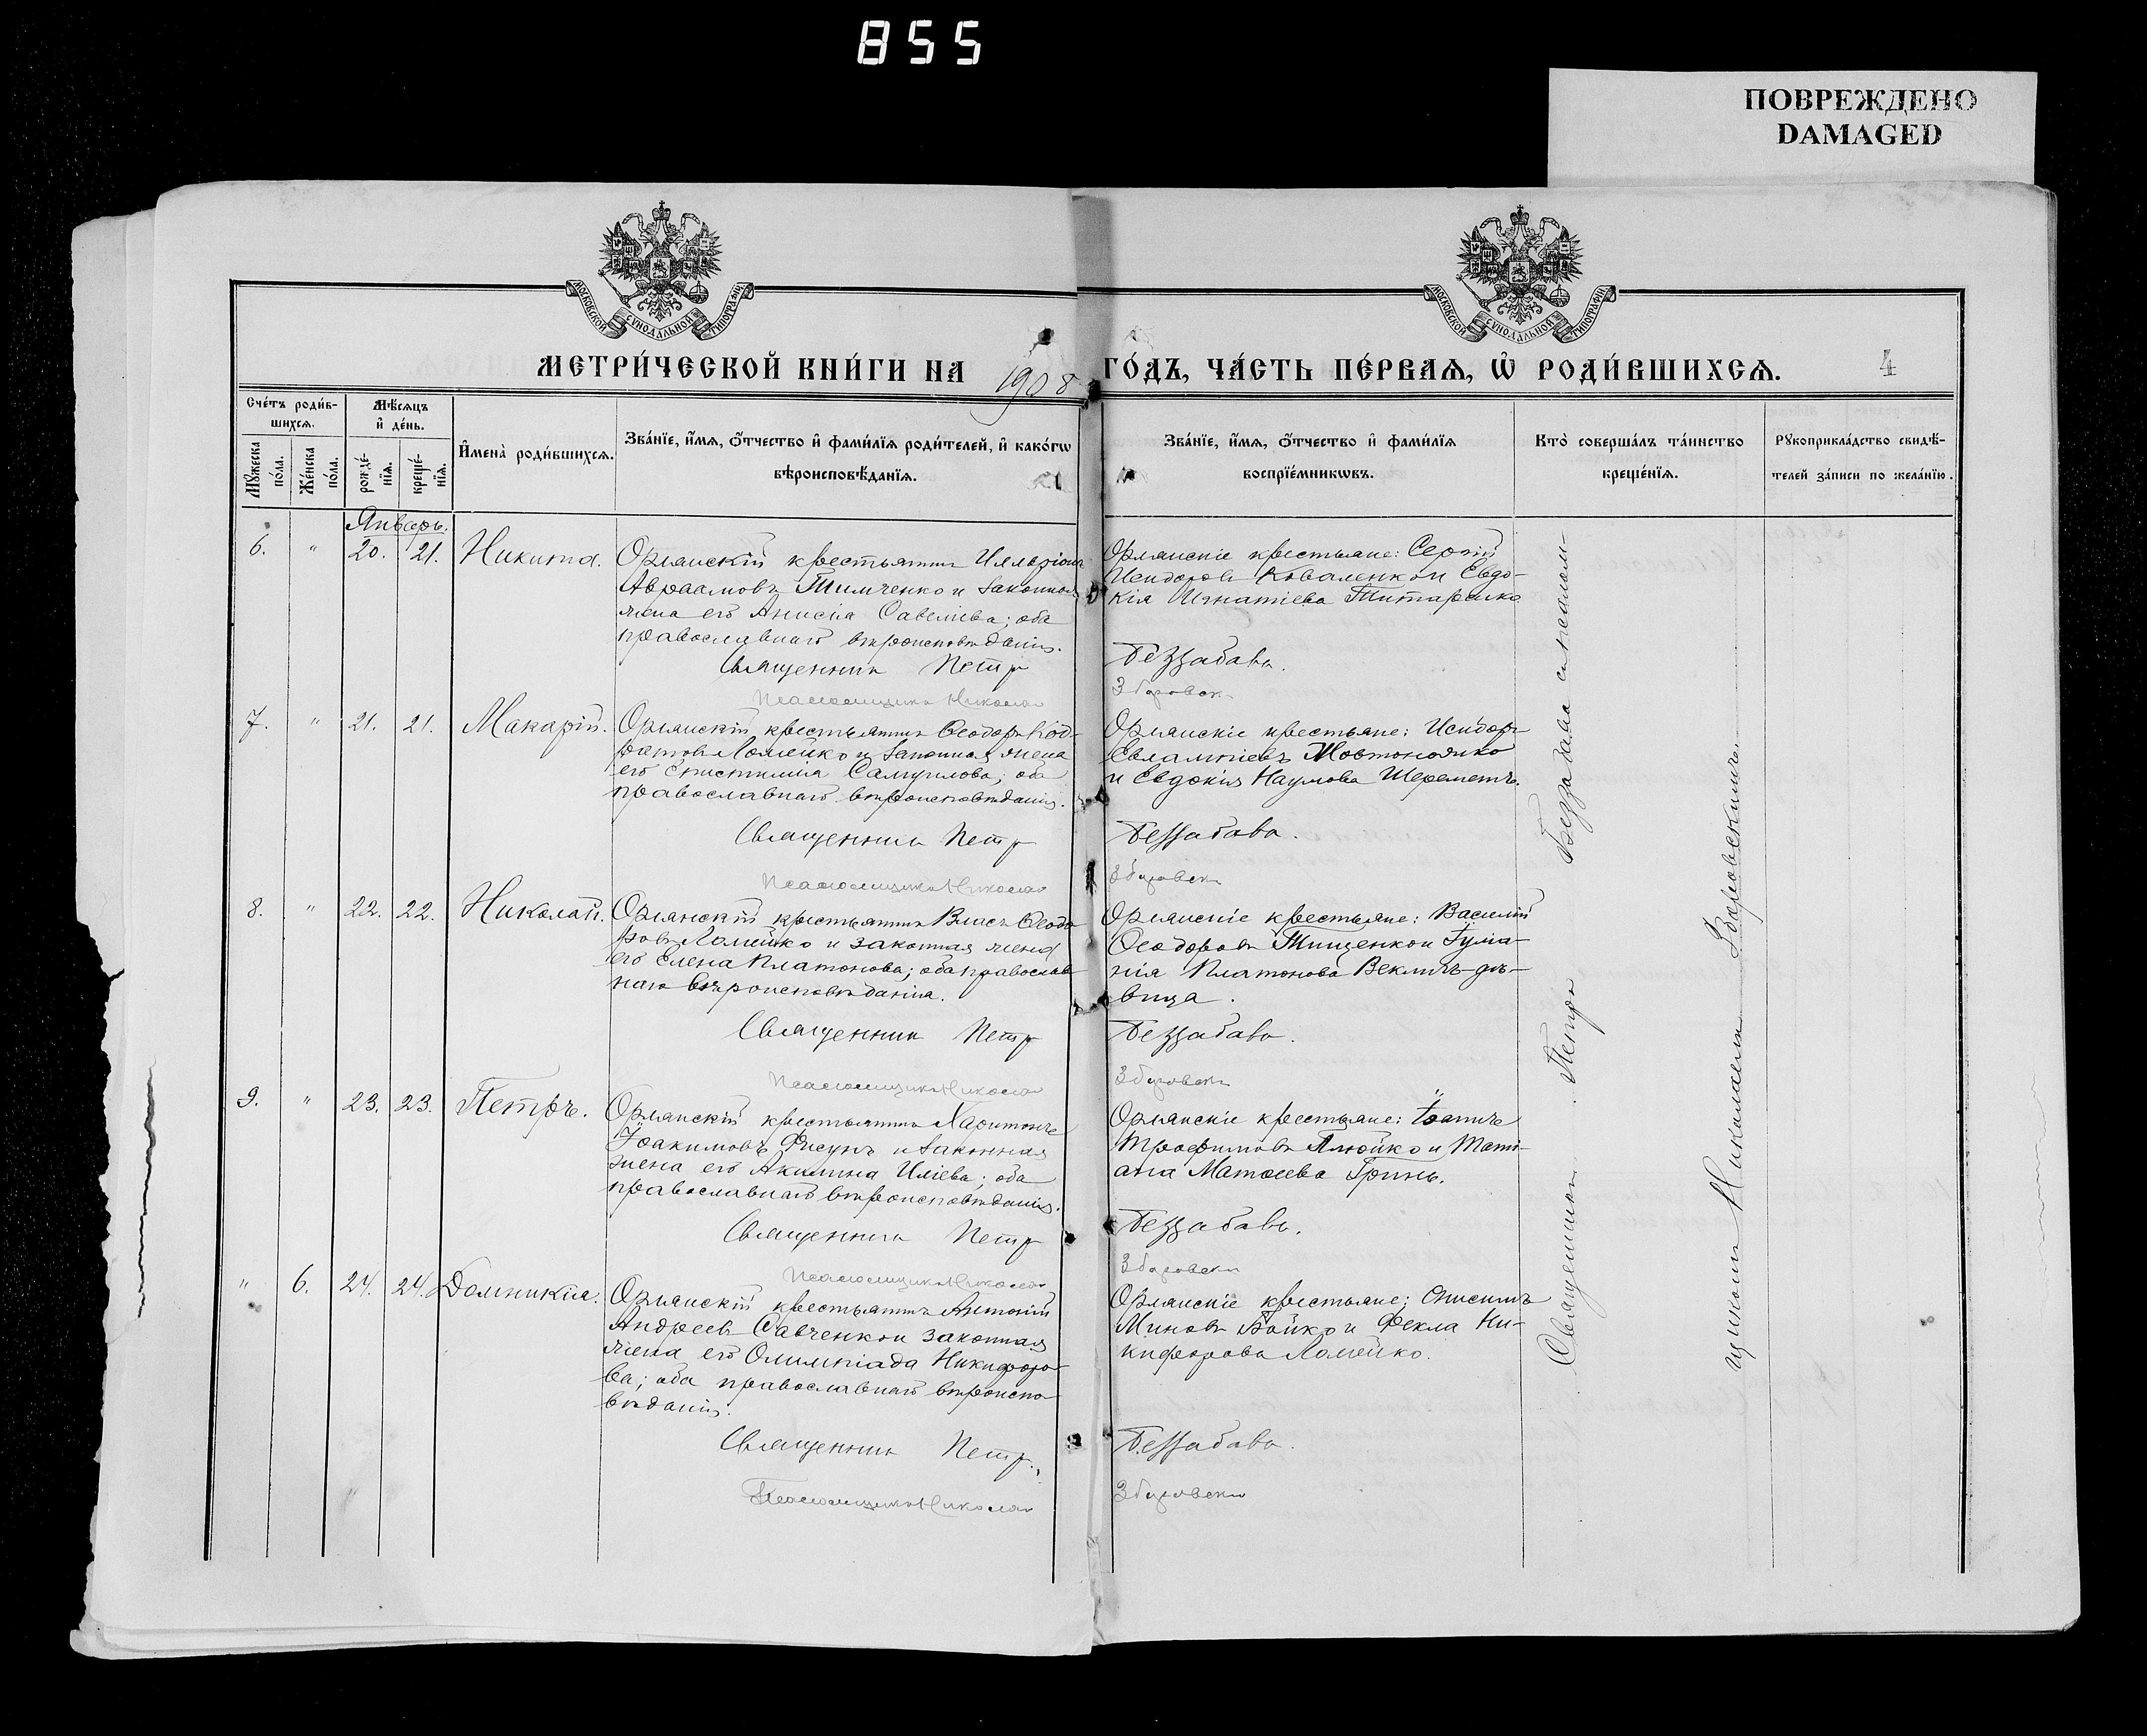 855
ПОВРЕЖДЕНО
DAMAGED
МОСКОВСКОЙ СѴНОДАЛЬНОЙ ТИПОГРАФІИ
МОСКОВСКОЙ СѴНОДАЛЬНОЙ ТИПОГРАФІИ
МЕТРИ́ЧЕСКОЙ КНИ́ГИ НА 1908 ГО́ДЪ, ЧА́СТЬ ПЕ́РВАѦ, Ѡ҆ РОДИ́ВШИХСѦ.
4
Сче́тъ роди́в-
шихсѧ.
Мꙋ́жеска по́ла.
Же́нска по́ла.
Мѣ́сѧцъ
и҆ де́нь.
рожде́-
нїѧ.
креще́-
нїѧ.
И҆мена̀ роди́вшихсѧ.
Зва́нїе, и҆́мѧ, ѻ҆́тчество и҆ фами́лїѧ роди́телей, и҆ како́гѡ
вѣроисповѣ́данїѧ.
Зва́нїе, и҆́мѧ, ѻ҆́тчество и҆ фами́лїѧ
воспрїе́мникѡвъ.
Кто̀ соверша́лъ та́инство
креще́нїѧ.
Рꙋкоприкла́дство свидѣ́-
телей за́писи по жела́нїю.
Январь.
6. " 20. 21. Никита.
Орлянскій крестьянинъ Илларіонъ
Авраамовъ Тимченко и законная
жена его Анисія Савеліева; оба
православнаго вѣроисповѣданія.
Священникъ Петръ
Псаломщикъ Николай
Орлянскіе крестьяне: Сергій
Исидоровъ Коваленко и Евдо-
кія Игнатіева Титаренко
Беззабава.
Збаровскій
7. " 21. 21. Макарій.
Орлянскій крестьянинъ Ѳеодоръ Код-
ратовъ Ломейко и законная жена
его Епистимія Самуилова; оба
православнаго вѣроисповѣданія.
Священникъ Петръ
Псаломщикъ Николай
Орлянскіе крестьяне: Исидоръ
Евлампіевъ Жовтоножко
и Евдокія Наумова Шереметъ.
Беззабава.
Збаровскій
8. " 22. 22. Николай.
Орлянскій крестьянинъ Власъ Ѳеодо-
ровъ Ломейко и законная жена
его Елена Платонова; оба православ-
наго вѣроисповѣданія.
Священникъ Петръ
Псаломщикъ Николай
Орлянскіе крестьяне: Василій
Ѳеодоровъ Тищенко и Гулiа-
нія Платонова Векличъ-дѣ-
вица.
Беззабава.
Збаровскій
9. " 23. 23. Петръ.
Орлянскій крестьянинъ Харитонъ
Іоакимовъ Фисунъ и законная
жена его Акилина Иліева; оба
православнаго вѣроисповѣданія.
Священникъ Петръ
Псаломщикъ Николай
Орлянскіе крестьяне: Іоаннъ
Трофимовъ и Тати-
ана Матѳеева Гринь.
Беззабава.
Збаровскій
" 6. 24. 24. Домникія.
Орлянскій крестьянинъ Антоній
Андреевъ Савченко и законная
жена его Олимпіада Никифоро-
ва; оба православнаго вѣроиспо-
вѣданія.
Священникъ Петръ
Псаломщикъ Николай
Орлянскіе крестьяне: Онисимъ
Миновъ Бойко и Фекла Ни-
кифорова Ломейко.
Беззабава.
Збаровскій
Священникъ Петръ Беззабава съ псалом-
щикомъ Николаемъ Збаровскимъ.